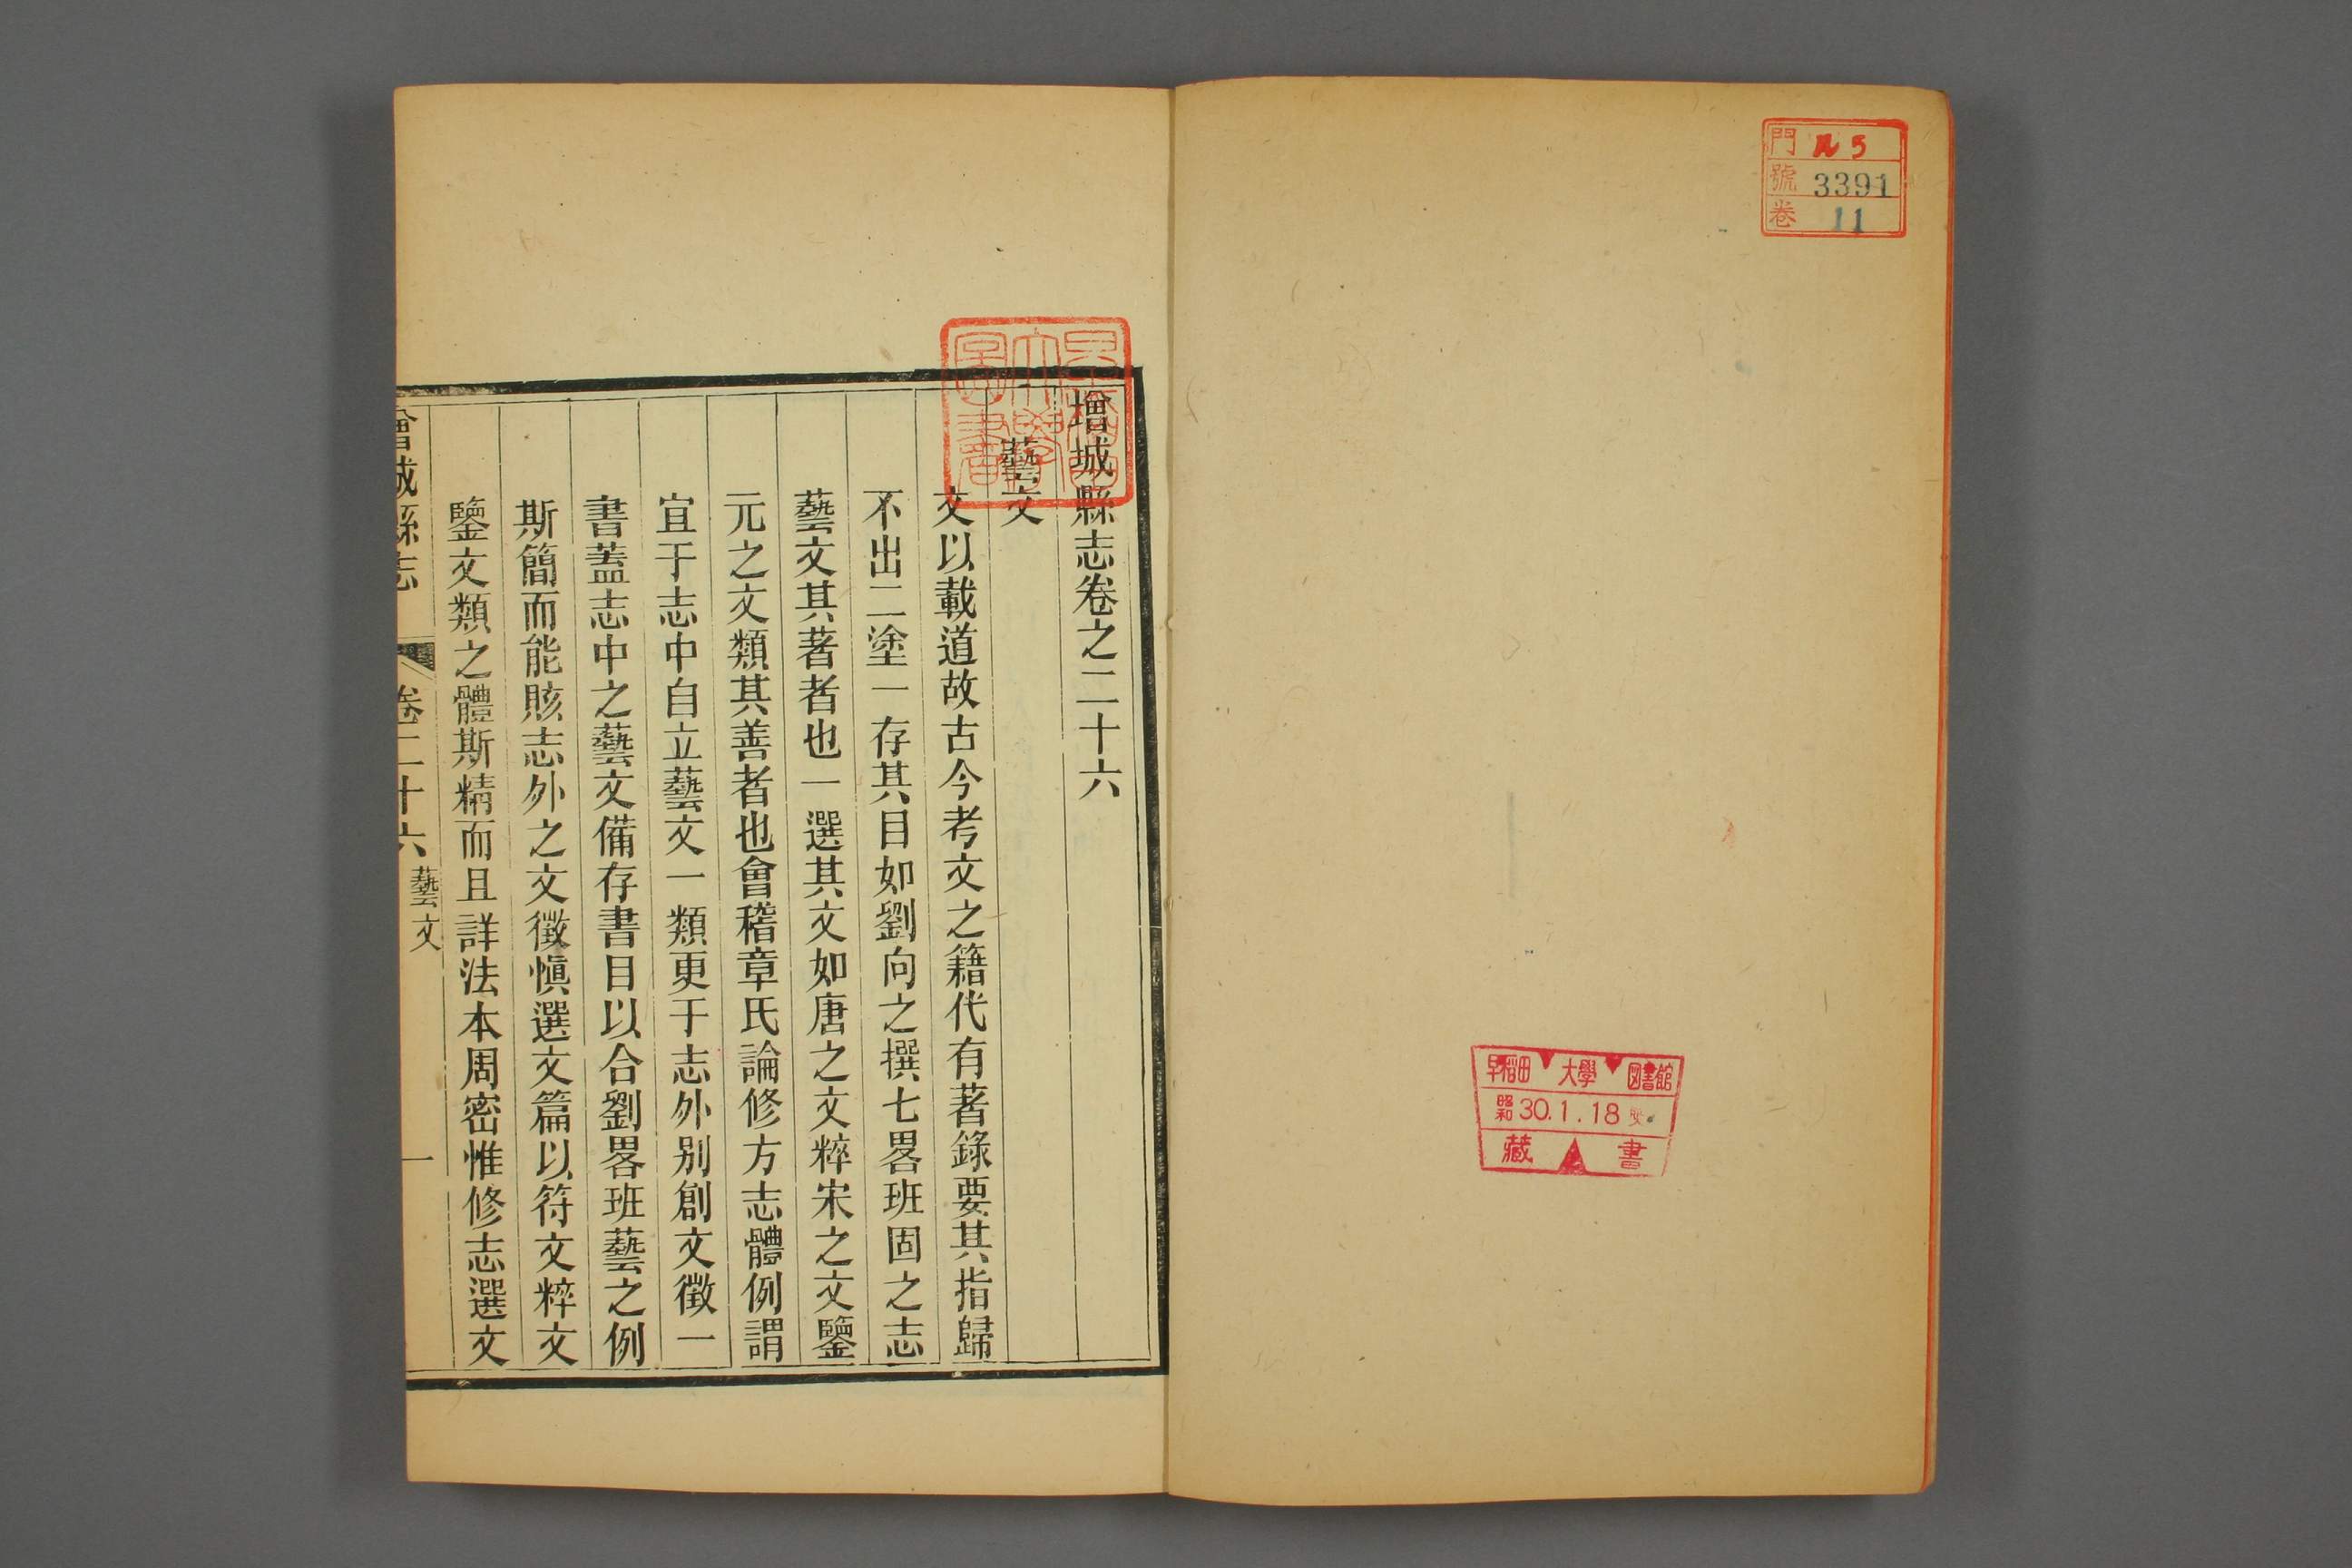 門 ル5
號 3391
卷 11
早稲田大學圖書館
昭和30.1.18
藏書
早稲田大學圖書
增城縣志卷之二十六
藝文
文以載道故古今考文之籍代有著錄要其指歸
不出二塗一存其目如劉向之撰七畧班固之志
藝文其著者也一選其文如唐之文粹宋之文鑒
元之文類其善者也會稽章氏論修方志體例謂
宜于志中自立藝文一類更于志外別創文徵一
書蓋志中之藝文備存書目以合劉畧班藝之例
斯簡而能賅志外之文徵慎選文篇以符文粹文
鑒文類之體斯精而且詳法本周密惟修志選文
曾城縣志 卷二十六 藝文 一